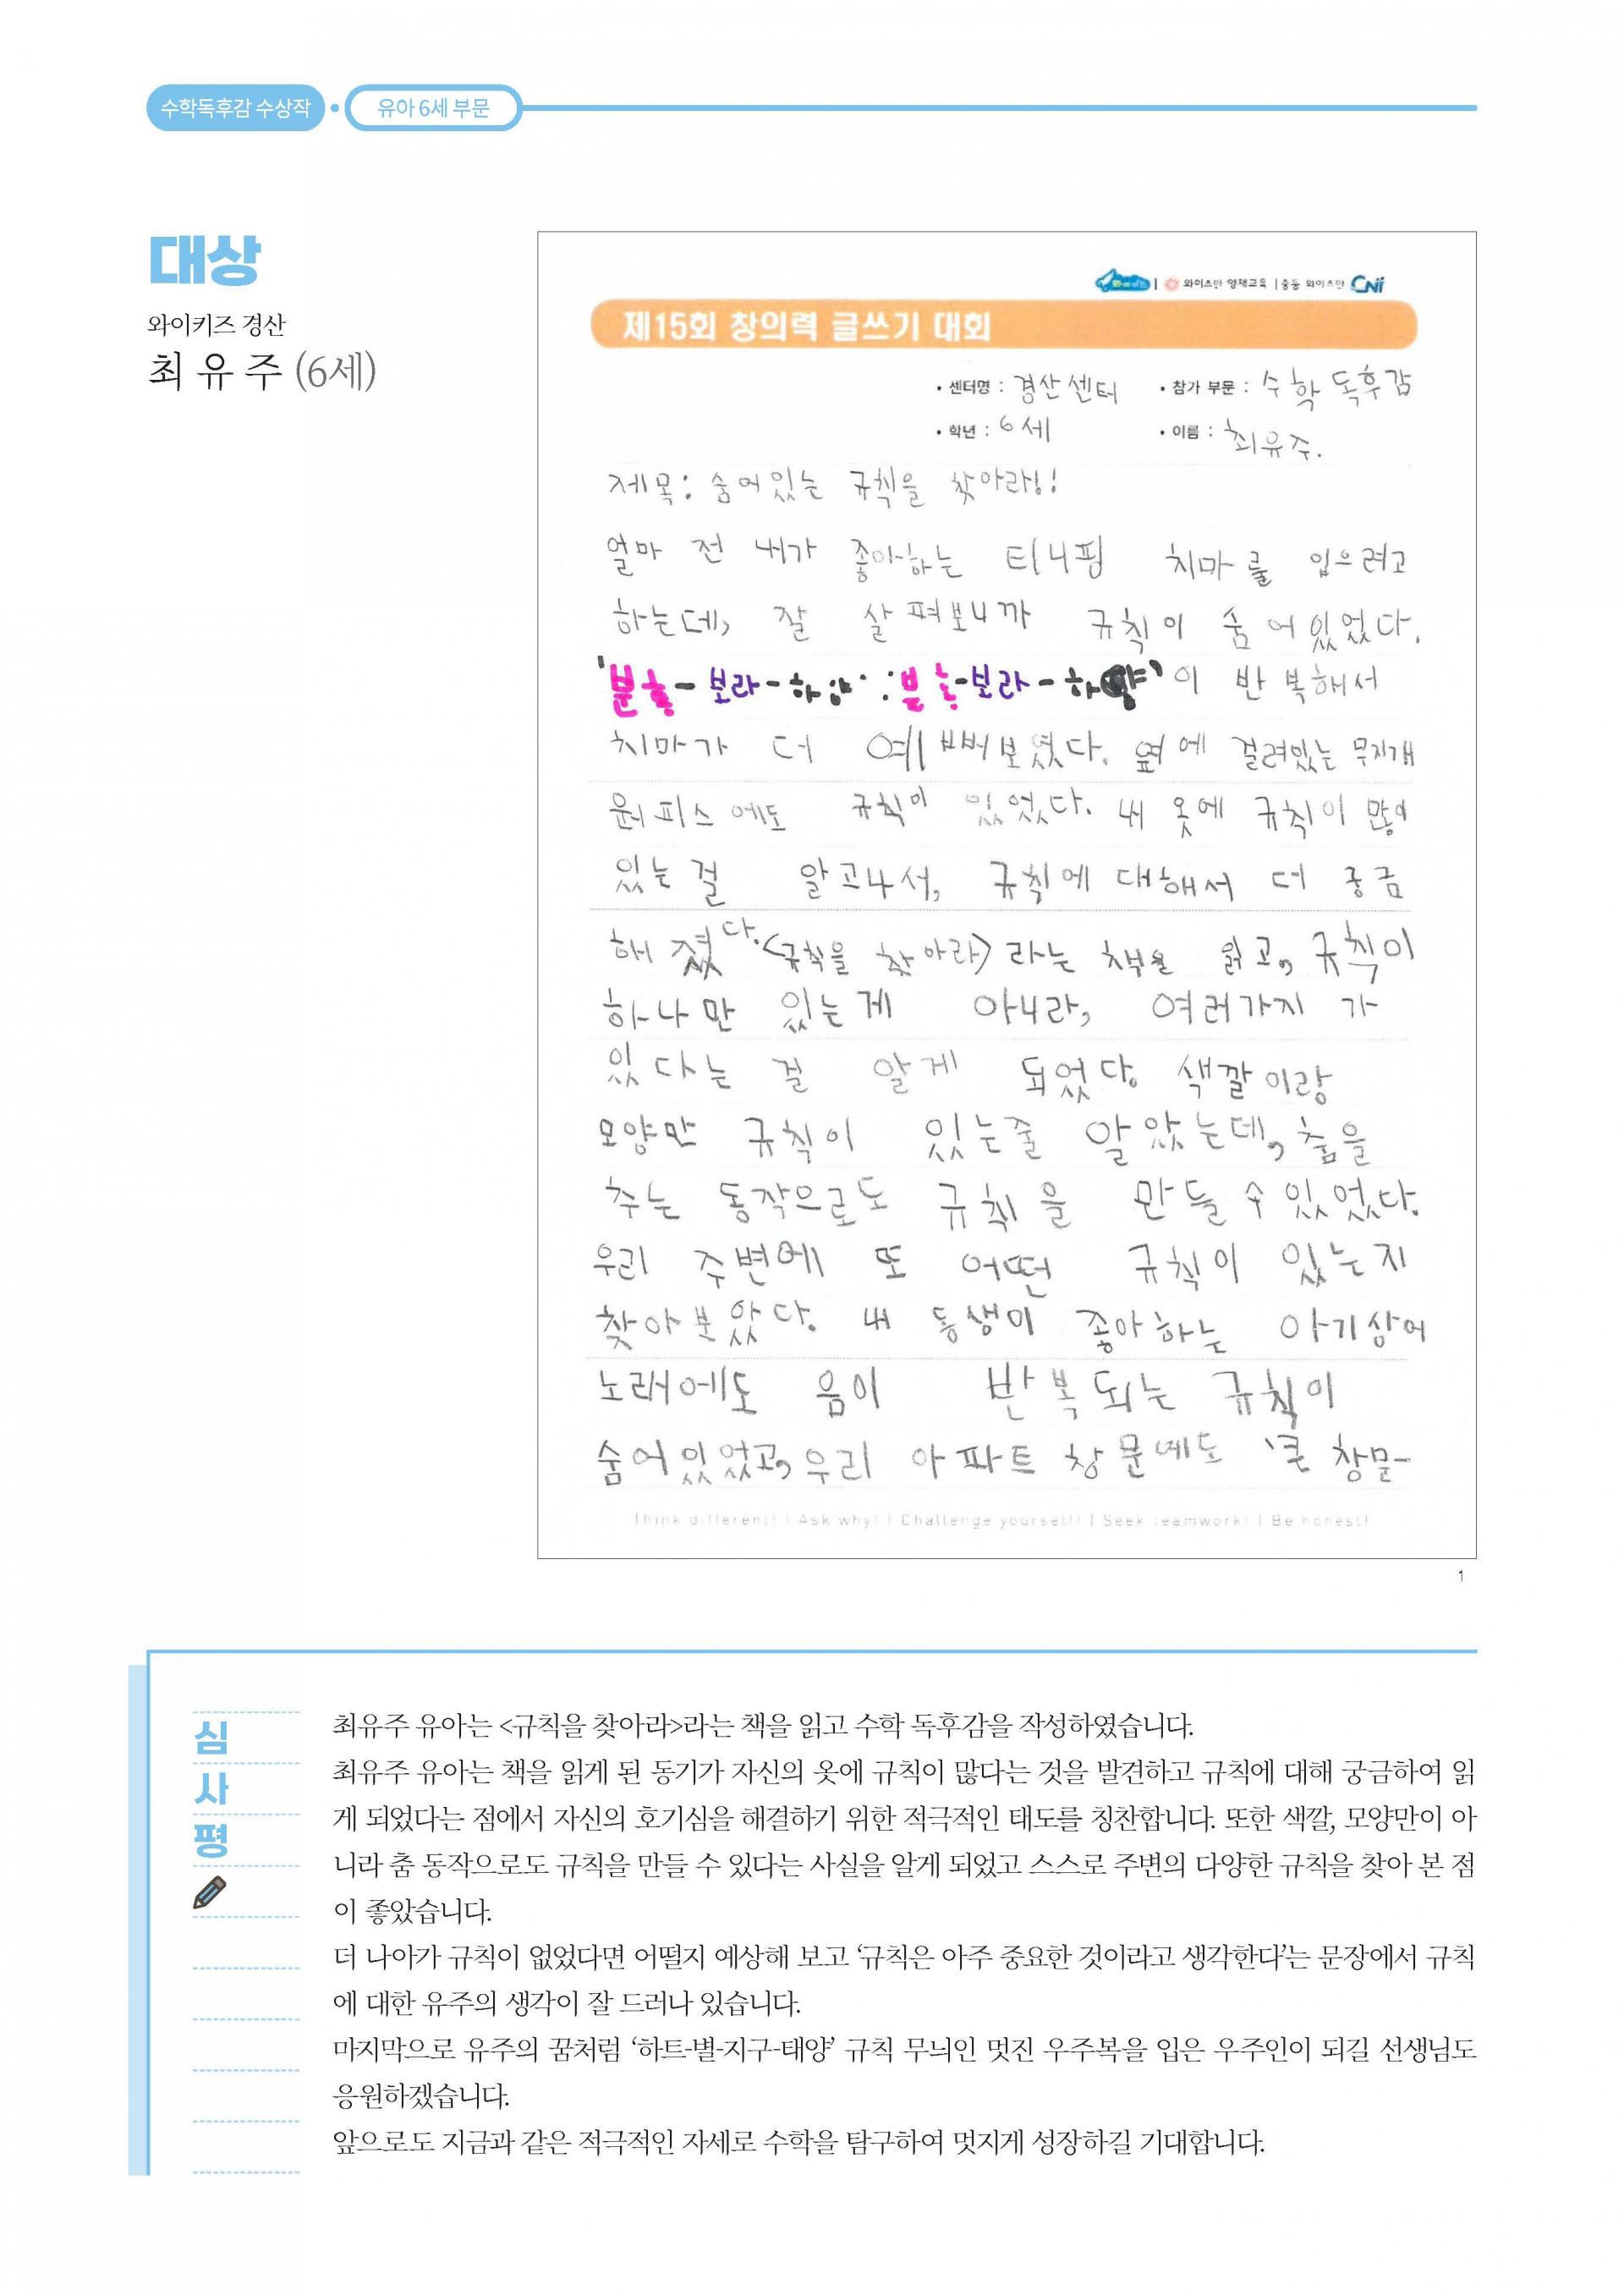 수학독후감 수상작 • 유아 6세 부문
대상
와이키즈 경산
최 유 주 (6세)
와이즈만 영재교육 | 중등 와이즈만 CNi
제15회 창의력 글쓰기 대회
• 센터명 : 경산센터 • 참가 부문 : 수학 독후감
• 학년 : 6세 • 이름 : 최유주.
제목: 숨어있는 규칙을 찾아라!!
얼마 전 내가 좋아하는 티니핑 치마를 입으려고
하는데, 잘 살펴보니까 규칙이 숨어있었다.
'분홍-보라-하양-분홍-보라-하양'이 반복해서
치마가 더 예뻐보였다. 옆에 걸려있는 무지개
원피스에도 규칙이 있었다. 내 옷에 규칙이 많이
있는걸 알고나서, 규칙에 대해서 더 궁금
해졌다. <규칙을 찾아라> 라는 책을 읽고, 규칙이
하나만 있는게 아니라, 여러가지 가
있다는 걸 알게 되었다. 색깔이랑
모양만 규칙이 있는줄 알았는데, 춤을
추는 동작으로도 규칙을 만들 수 있었다.
우리 주변에 또 어떤 규칙이 있는지
찾아보았다. 내 동생이 좋아하는 아기상어
노래에도 음이 반복되는 규칙이
숨어있었고, 우리 아파트 창문에도 '큰 창문-
Think different! | Ask why! | Challenge yourself! | Seek teamwork! | Be honest!
1
심사평
최유주 유아는 <규칙을 찾아라>라는 책을 읽고 수학 독후감을 작성하였습니다.
최유주 유아는 책을 읽게 된 동기가 자신의 옷에 규칙이 많다는 것을 발견하고 규칙에 대해 궁금하여 읽
게 되었다는 점에서 자신의 호기심을 해결하기 위한 적극적인 태도를 칭찬합니다. 또한 색깔, 모양만이 아
니라 춤 동작으로도 규칙을 만들 수 있다는 사실을 알게 되었고 스스로 주변의 다양한 규칙을 찾아 본 점
이 좋았습니다.
더 나아가 규칙이 없었다면 어떨지 예상해 보고 '규칙은 아주 중요한 것이라고 생각한다'는 문장에서 규칙
에 대한 유주의 생각이 잘 드러나 있습니다.
마지막으로 유주의 꿈처럼 '하트-별-지구-태양' 규칙 무늬인 멋진 우주복을 입은 우주인이 되길 선생님도
응원하겠습니다.
앞으로도 지금과 같은 적극적인 자세로 수학을 탐구하여 멋지게 성장하길 기대합니다.